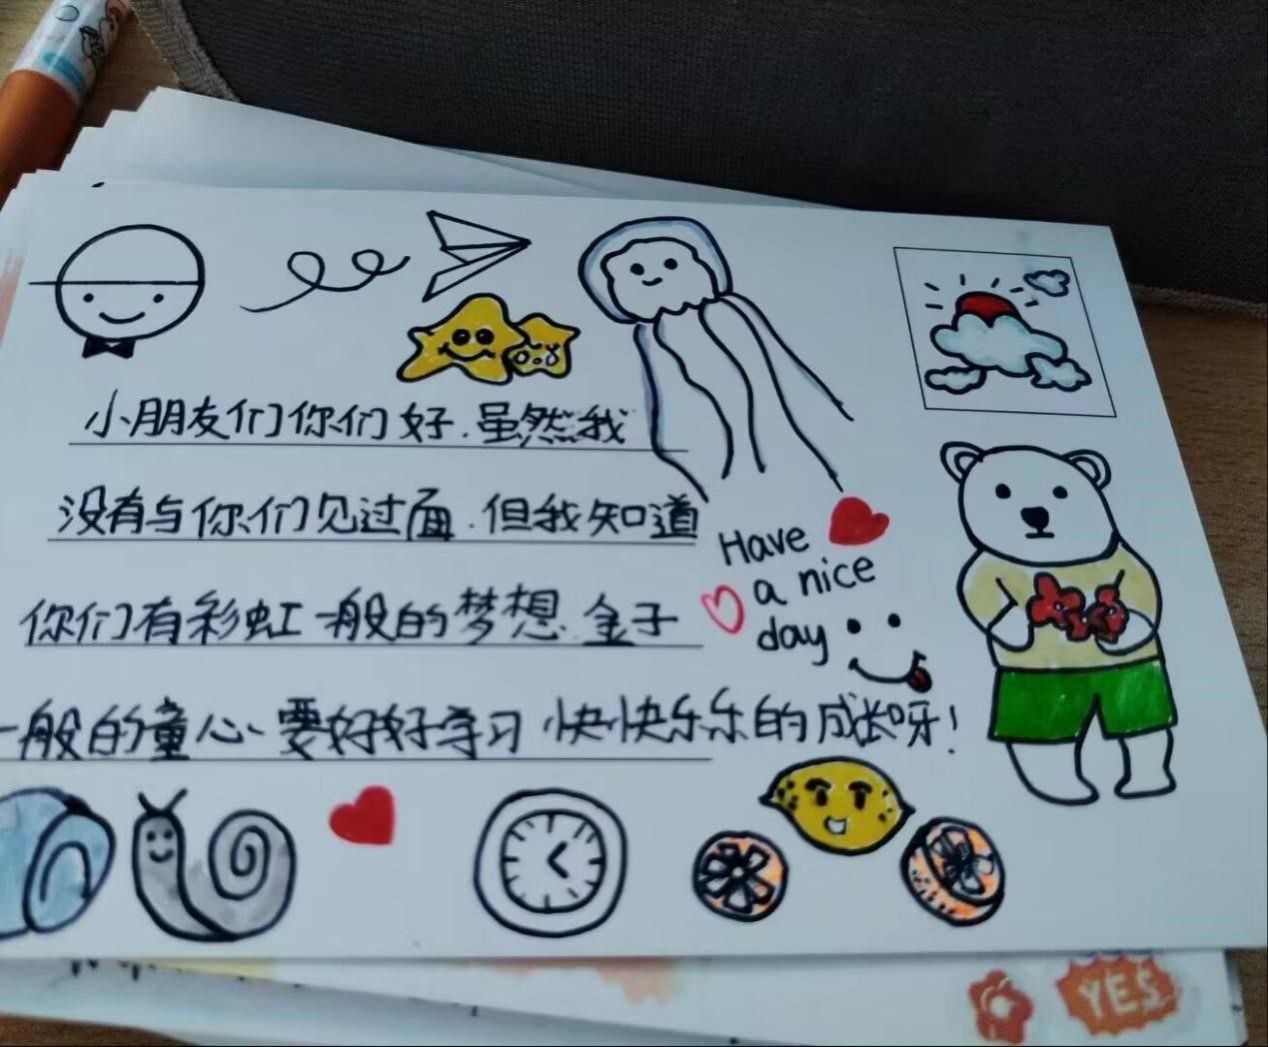 小朋友们你们好.虽然我
没有与你们见过面.但我知道
你们有彩虹一般的梦想.金子
一般的童心、要好好学习 快快乐乐的成长呀!
Have
a nice
day
YES